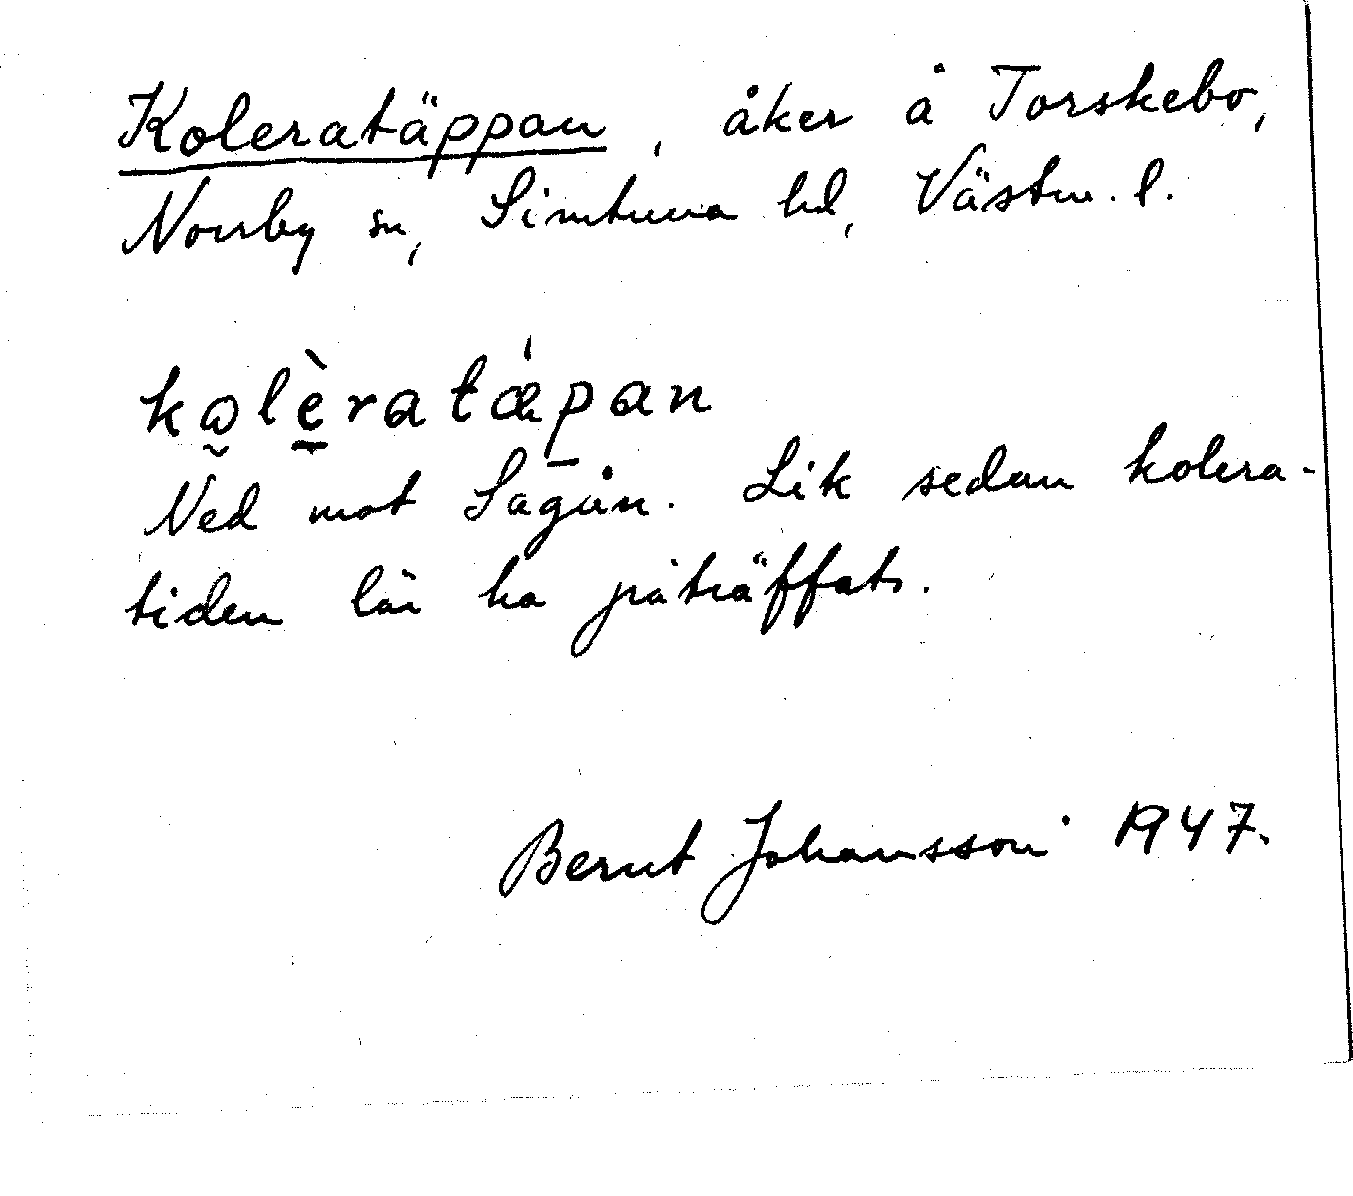 Koleratäppan, åker å Torskebo,
Norrby sn, Simtuna hd, Västm. l.
kωlèratǽpan
Ned mot Sagån. Lik sedan kolera-
tiden lär ha påträffats.
Bernt Johansson 1947.